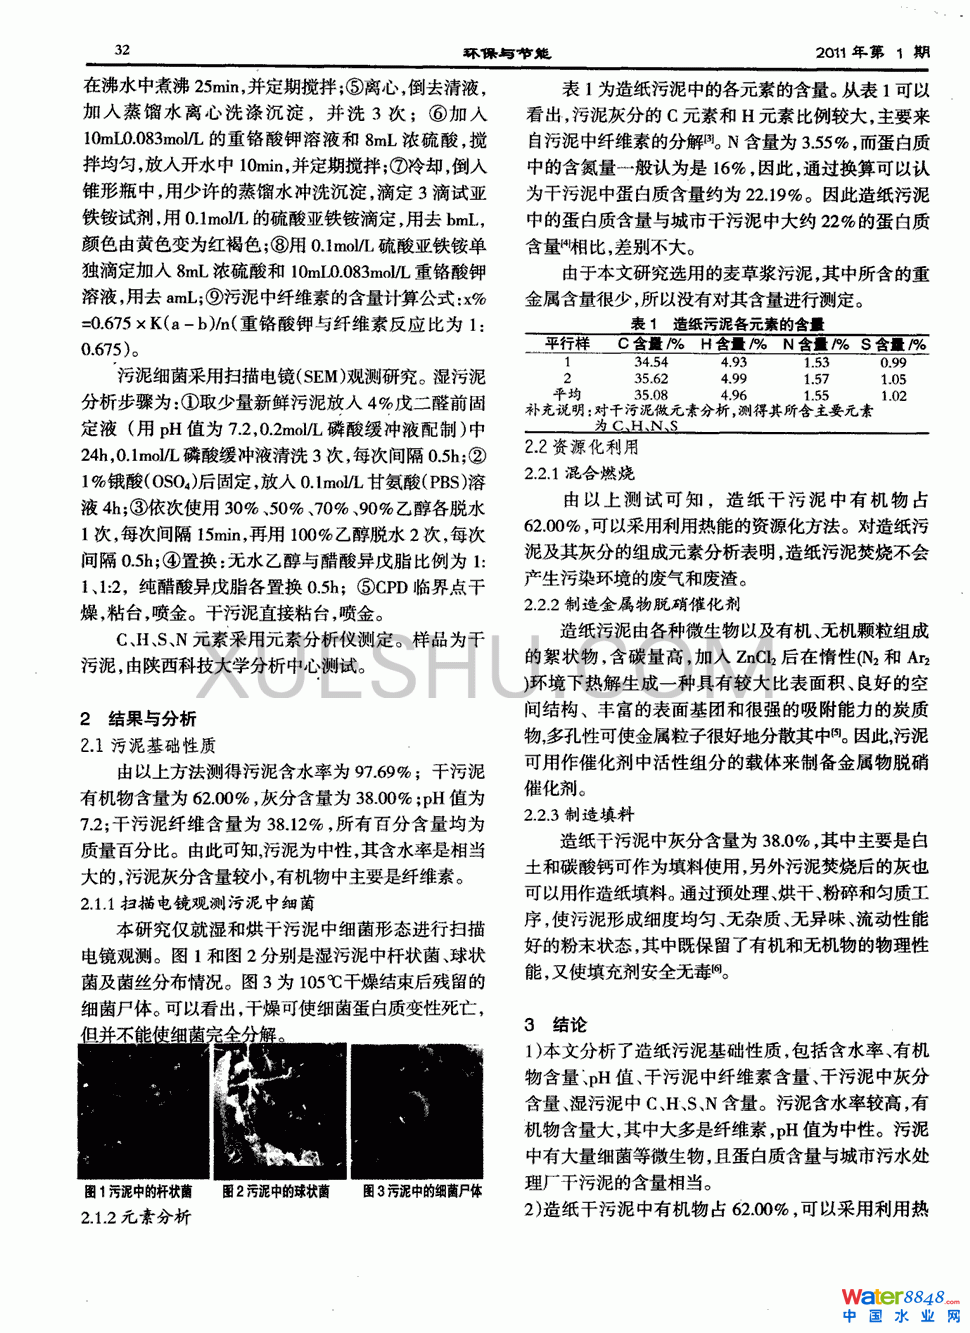 32
环保与节能
2011年第 1 期
在沸水中煮沸 25min,并定期搅拌;⑤离心,倒去清液,
加入蒸馏水离心洗涤沉淀, 并洗 3 次; ⑥加入
10mL0.083mol/L 的重铬酸钾溶液和 8mL 浓硫酸,搅
拌均匀,放入开水中 10min,并定期搅拌;⑦冷却,倒入
锥形瓶中,用少许的蒸馏水冲洗沉淀,滴定 3 滴试亚
铁铵试剂,用 0.1mol/L 的硫酸亚铁铵滴定,用去 bmL,
颜色由黄色变为红褐色;⑧用 0.1mol/L 硫酸亚铁铵单
独滴定加入 8mL 浓硫酸和 10mL0.083mol/L 重铬酸钾
溶液,用去 amL;⑨污泥中纤维素的含量计算公式:x%
=0.675×K(a-b)/n(重铬酸钾与纤维素反应比为 1:
0.675)。
污泥细菌采用扫描电镜(SEM)观测研究。湿污泥
分析步骤为:①取少量新鲜污泥放入 4%戊二醛前固
定液 (用 pH 值为 7.2,0.2mol/L 磷酸缓冲液配制)中
24h,0.1mol/L 磷酸缓冲液清洗 3 次,每次间隔 0.5h;②
1%锇酸(OSO₄)后固定,放入 0.1mol/L 甘氨酸(PBS)溶
液 4h;③依次使用 30%、50%、70%、90%乙醇各脱水
1 次,每次间隔 15min,再用 100%乙醇脱水 2 次,每次
间隔 0.5h;④置换:无水乙醇与醋酸异戊脂比例为 1:
1、1:2, 纯醋酸异戊脂各置换 0.5h; ⑤CPD 临界点干
燥,粘台,喷金。干污泥直接粘台,喷金。
C、H、S、N 元素采用元素分析仪测定。样品为干
污泥,由陕西科技大学分析中心测试。
2 结果与分析
2.1 污泥基础性质
由以上方法测得污泥含水率为 97.69%; 干污泥
有机物含量为 62.00%,灰分含量为 38.00%;pH 值为
7.2;干污泥纤维含量为 38.12%,所有百分含量均为
质量百分比。由此可知,污泥为中性,其含水率是相当
大的,污泥灰分含量较小,有机物中主要是纤维素。
2.1.1 扫描电镜观测污泥中细菌
本研究仅就湿和烘干污泥中细菌形态进行扫描
电镜观测。图 1 和图 2 分别是湿污泥中杆状菌、球状
菌及菌丝分布情况。图 3 为 105℃干燥结束后残留的
细菌尸体。可以看出,干燥可使细菌蛋白质变性死亡,
但并不能使细菌完全分解。
图 1 污泥中的杆状菌
图 2 污泥中的球状菌
图 3 污泥中的细菌尸体
2.1.2 元素分析
表 1 为造纸污泥中的各元素的含量。从表 1 可以
看出,污泥灰分的 C 元素和 H 元素比例较大,主要来
自污泥中纤维素的分解[3]。N 含量为 3.55%,而蛋白质
中的含氮量一般认为是 16%,因此,通过换算可以认
为干污泥中蛋白质含量约为 22.19%。因此造纸污泥
中的蛋白质含量与城市干污泥中大约 22%的蛋白质
含量[4]相比,差别不大。
由于本文研究选用的麦草浆污泥,其中所含的重
金属含量很少,所以没有对其含量进行测定。
表 1 造纸污泥各元素的含量
平行样 C 含量/% H 含量/% N 含量/% S 含量/%
1 34.54 4.93 1.53 0.99
2 35.62 4.99 1.57 1.05
平均 35.08 4.96 1.55 1.02
补充说明:对干污泥做元素分析,测得其所含主要元素
为 C、H、N、S
2.2 资源化利用
2.2.1 混合燃烧
由以上测试可知, 造纸干污泥中有机物占
62.00%,可以采用利用热能的资源化方法。对造纸污
泥及其灰分的组成元素分析表明,造纸污泥焚烧不会
产生污染环境的废气和废渣。
2.2.2 制造金属物脱硝催化剂
造纸污泥由各种微生物以及有机、无机颗粒组成
的絮状物,含碳量高,加入 ZnCl₂ 后在惰性(N₂ 和 Ar₂
)环境下热解生成一种具有较大比表面积、良好的空
间结构、 丰富的表面基团和很强的吸附能力的炭质
物,多孔性可使金属粒子很好地分散其中[5]。因此,污泥
可用作催化剂中活性组分的载体来制备金属物脱硝
催化剂。
2.2.3 制造填料
造纸干污泥中灰分含量为 38.0%,其中主要是白
土和碳酸钙可作为填料使用,另外污泥焚烧后的灰也
可以用作造纸填料。通过预处理、烘干、粉碎和匀质工
序,使污泥形成细度均匀、无杂质、无异味、流动性能
好的粉末状态,其中既保留了有机和无机物的物理性
能,又使填充剂安全无毒[6]。
3 结论
1)本文分析了造纸污泥基础性质,包括含水率、有机
物含量、pH 值、干污泥中纤维素含量、干污泥中灰分
含量、湿污泥中 C、H、S、N 含量。污泥含水率较高,有
机物含量大,其中大多是纤维素,pH 值为中性。污泥
中有大量细菌等微生物,且蛋白质含量与城市污水处
理厂干污泥的含量相当。
2)造纸干污泥中有机物占 62.00%,可以采用利用热
XUESHU.COM
Water8848.com
中国水业网